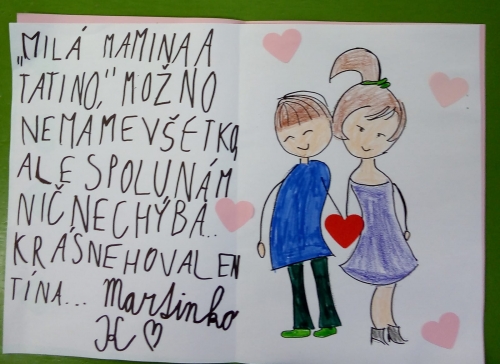 „MILÁ MAMINA A
TATINO," MOŽNO
NEMAME VŠETKO,
ALE SPOLU NÁM
NIČ NECHÝBA..
KRÁSNEHO VALEN
TÍNA... Martinko
K ♡